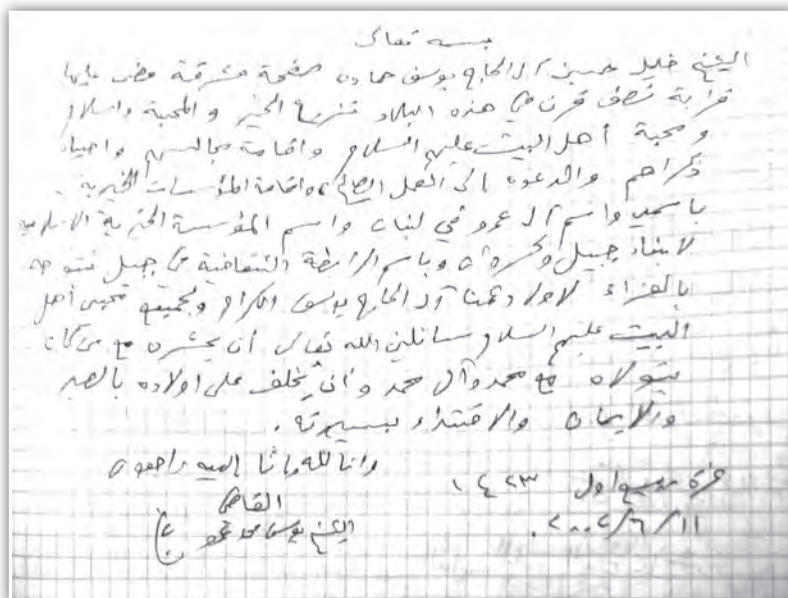 بسمه تعالى
الشيخ خليل حسين آل الحاج يوسف حماده صفحة مشرقة مضى عليها
قرابة نصف قرن في هذه البلاد تنزيها الخير والمحبة والسلام
ومحبة أهل البيت عليهم السلام واقامة مجالسهم واحياء
ذكراهم والدعوة الى العمل الصالح واقامة المؤسسات الخيرية.
باسمي واسم آل عمرو في لبنان واسم المؤسسة الخيرية الاسلامية
لابناء جبيل وكسروان وباسم الرابطة الثقافية في جبيل نتوجه
بالعزاء لاولاد عمنا آل الحاج يوسف الكرام ولجميع محبي أهل
البيت عليهم السلام سائلين الله تعالى أن يحشره مع من كان
يتولاه مع محمد وآل محمد وأن يخلف على اولاده بالصبر
والايمان والاقتداء بسيرته.
وانا لله وانا إليه راجعون
غرة ربيع اول ١٤٢٣
القاضي
٢٠٠٢/٦/١١.
الشيخ يوسف محمد عمرو